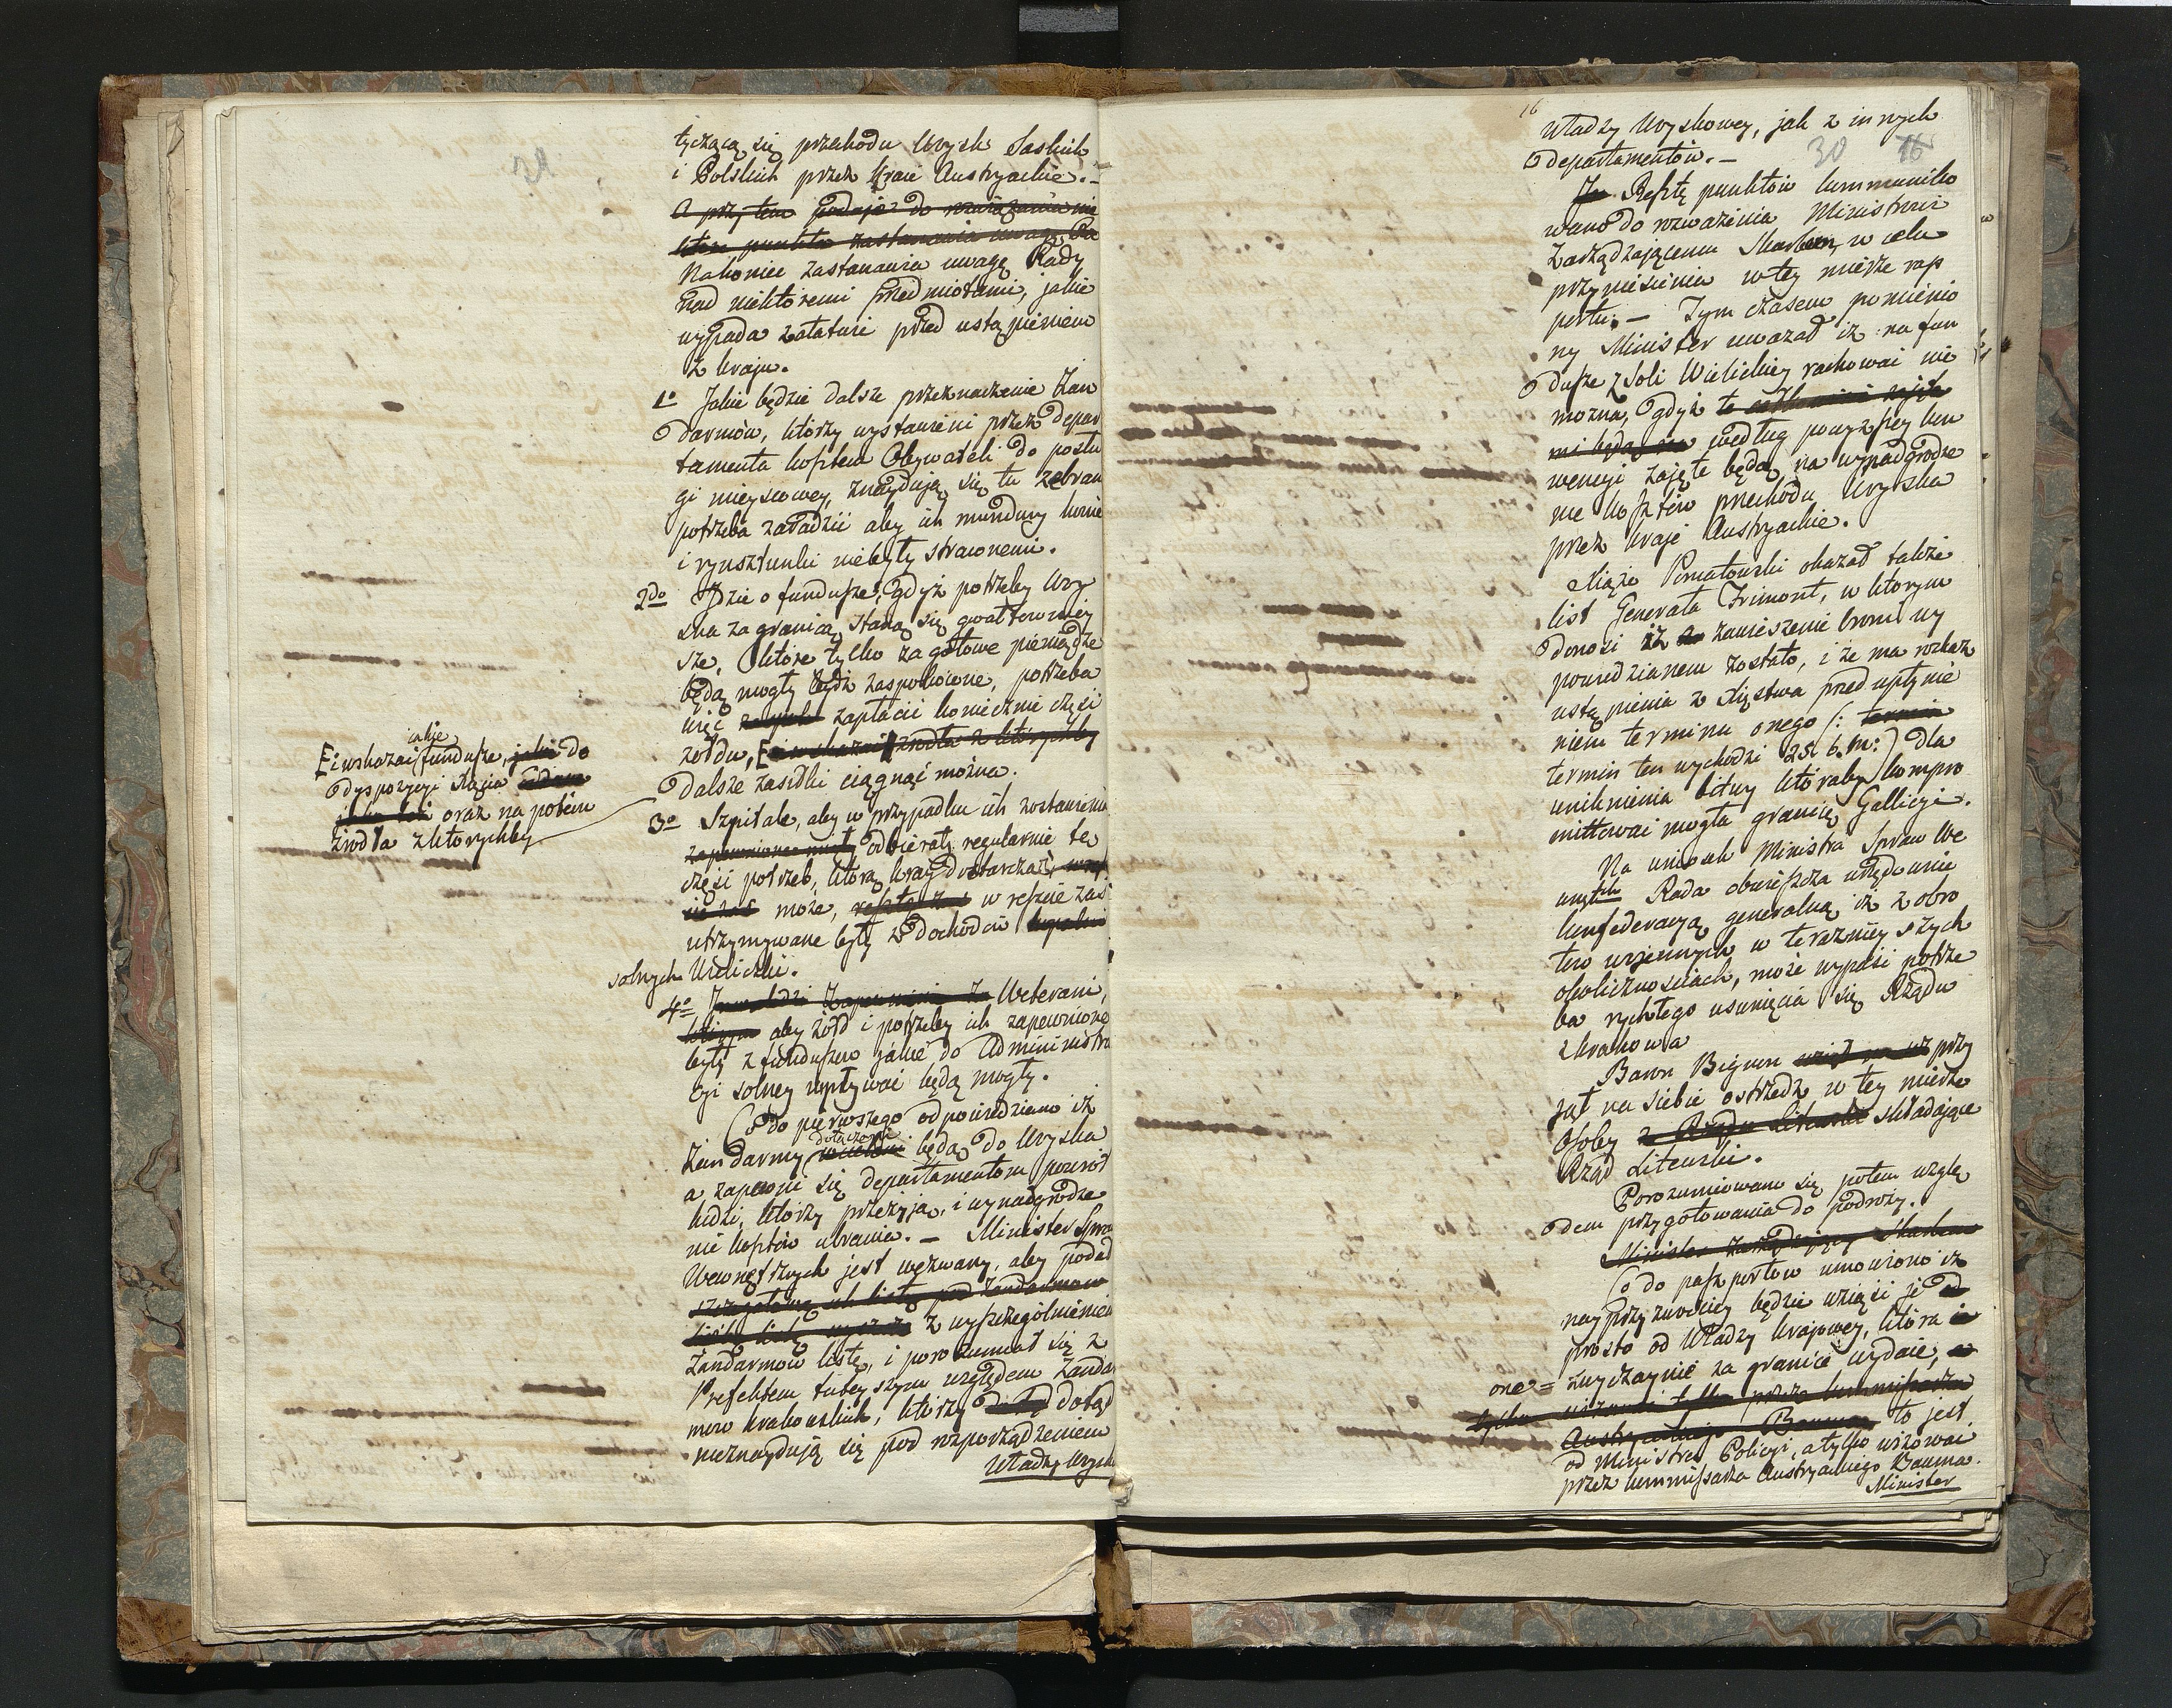 tyczącą się przechodu Woysk Saskich
i Polskich przez kraie Austryackie. –
a przy tem podaje do rozważenia nie
które punkta zastanawia uwagę Ra
Nakoniec zastanawia uwagę Rady
nad niektóremi przedmiotami, jakie
wypada załatwić przed ustąpieniem
z kraju.
1o Jakie będzie dalsze przeznaczenie Żan
darmów, którzy wystawieni przez depar
tamenta kosztem Obywateli do posłu
gi mieyscowey, znaydują się tu zebrani
potrzeba zaradzić aby ich mundury konie
i rynsztunki niebyły straconemi.
2do Idzie o fundusze, gdyż potrzeby Woy
ska za granicą staną się gwałtowniey
sze, które tylko za gotowe pieniądze
będą mogły bydź zaspokoione, potrzeba
więc zapłacić koniecznie część
żołdu, [i wskazać źrodła z którychby
dalsze zasiłki ciągnąć można.
[i wskazać jakie fundusze, jakie do
dyspozycyi Xięcia
oraz na potem
źrodła z którychby
3o Szpitale, aby w przypadku ich zostawienia
zapewnione miały odbierały regularnie tę
część potrzeb, którą kray dostarczać
może, resztę zaś w reszcie zaś
utrzymywane były z dochodów
solnych Wieliczki.
4o Weterani,
którym aby żołd i potrzeby ich zapewnione
były z funduszów jakie do Administra
cyi solney wpływać będą mogły.
Co do pierwszego odpowiedziano iż
Żandarmy dołączeni będą do Woyska
a zapewni się departamentom powrót
ludzi, którzy przeżyją, i wynadgrodze
nie kosztów ubrania. – Minister Spraw
Wewnętrznych jest wezwany, aby podał
szczegółową ich listę pod Żandarmow
z wyszczegolnieniem
Żandarmow listę, i porozumiał się z
Prefektem tuteyszym względem Żandar
mow krakowskich, którzy dotąd
nieznaydują się pod rozporządzeniem
Władzy Woysk
16
Władzy Woyskowey, jak z innych
departamentów. –
30 16
Resztę punktów kommuniko
wano do rozważenia Ministrowi
Zarządzającemu Skarbem, w celu
przyniesienia w tey mierze rap
portu. – Tym czasem pomienio
ny Minister uważał iż na fun
dusze z Soli Wielickiey rachować nie
można, gdyż te
mi będą na według powyższey kon
wencyi zajęte będą na wynadgrodze
nie kosztów przechodu Woyska
przez kraje Austryackie.
Xiąże Poniatowski okazał także
list Generała Frimont, w ktorym
donosi iż zawieszenie broni wy
powiedzianem zostało, i że ma rozkaz
ustąpienia z Xięstwa przed upłynie
niem terminu onego (: termin
termin ten wychodzi 25. b. m:) dla
uniknienia bitwy któraby kompro
mittować mogła granicę Gallicyi.
Na wniosek Ministra Spraw We
wnętch Rada obwieszcza urzędownie
konfederacyą generalną iż z obro
tow wojennych w teraznieyszych
okolicznościach, może wypaść potrze
ba rychłego usunięcia się Rządu
z Krakowa
Baron Bignon wziął na się przy
jął na siebie ostrzedz w tey mierze
Osoby z Rządu Litewski składające
Rząd Litewski.
Porozumiewano się potem wzglę
dem przygotowania do podroży.
Minister zarządzający Skarbem
Co do paszportow umowiono iż
nayprzyzwoiciey będzie wziąść je
prosto od Władzy krajowey, która
one = zwyczaynie za granicę wydaie,
tylko wizować tylko przez kommissarza
Austryackiego Bauma to jest
od Ministra Policyi, a tylko wizować
przez kommissarza Austryackiego Bauma.
Minister